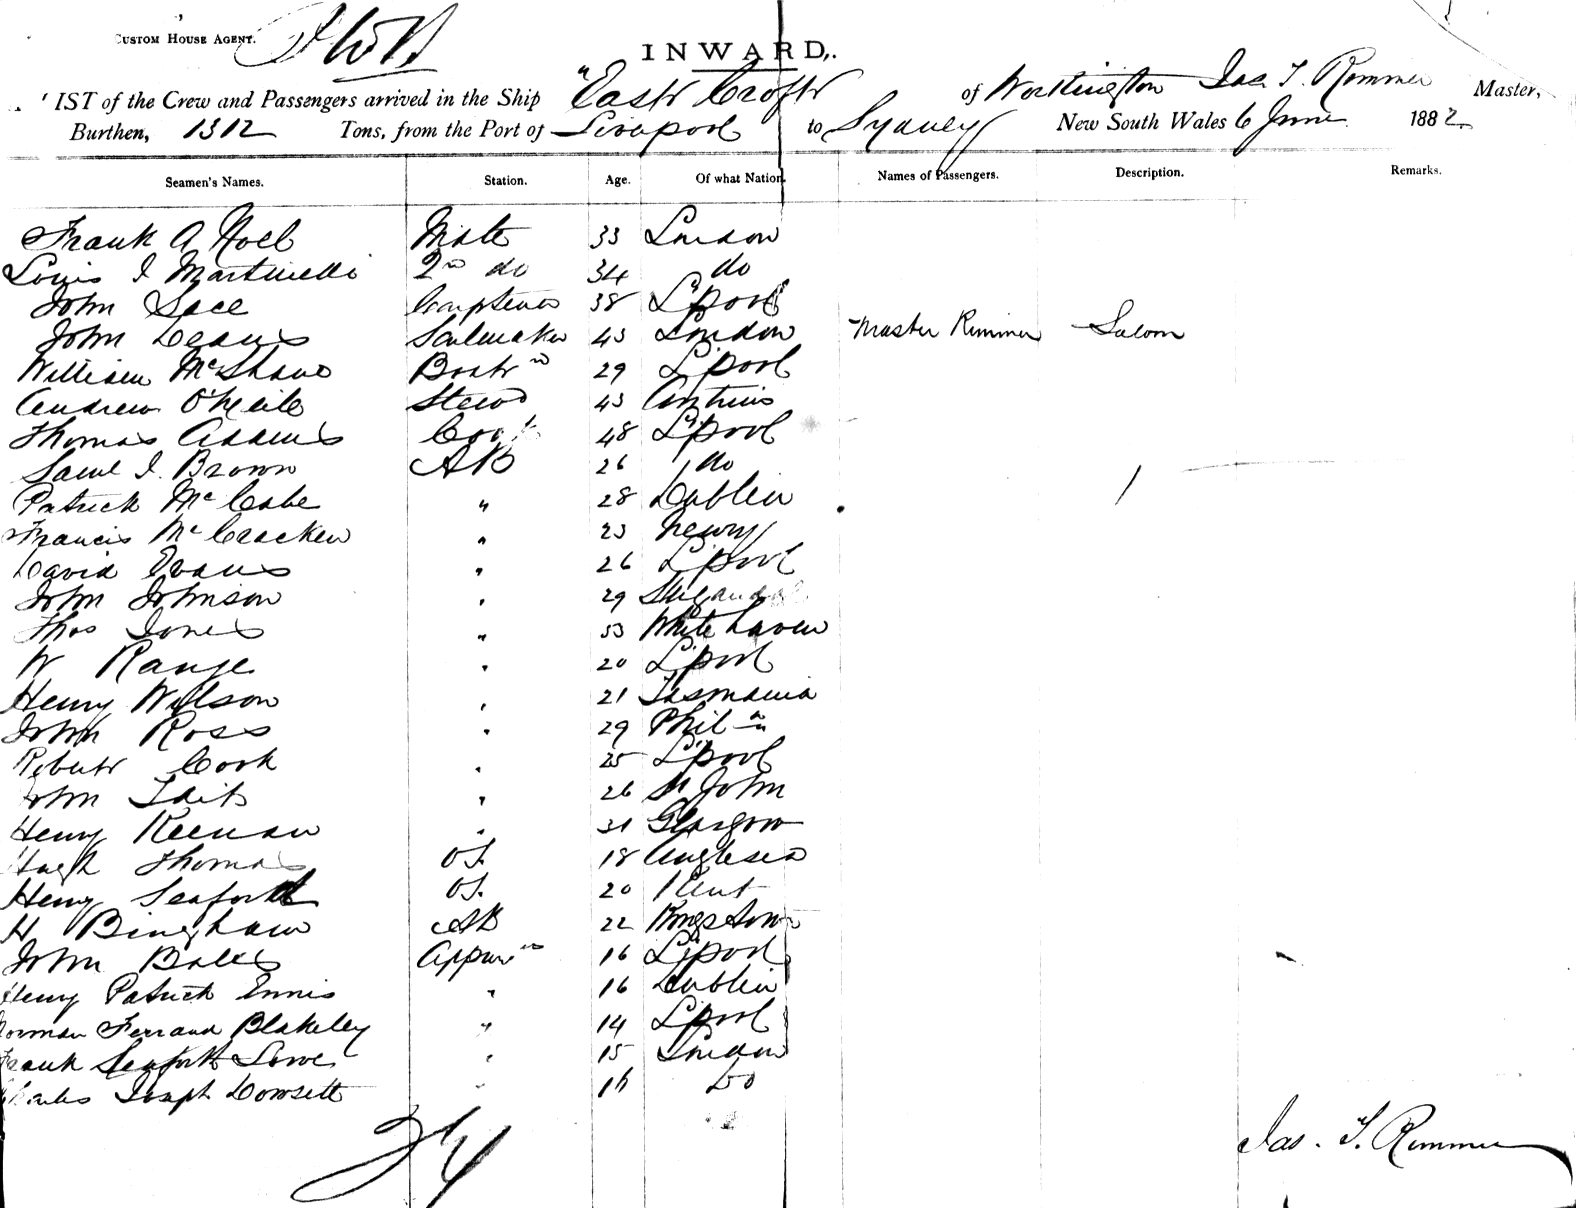 CUSTOM HOUSE AGENT.
INWARD,.
IST of the Crew and Passengers arrived in the Ship "East Croft of Workington Jas. T. Rimmer Master,
Burthen, 1312 Tons, from the Port of Liverpool to Sydney New South Wales 6 June 1882
Seamen's Names. Station. Age. Of what Nation. Names of Passengers. Description. Remarks.
Frank A Noel Mate 33 London
Louis J Martinelli 2nd do 34 do
John Sace Carpenter 38 L'pool
John Deans Sailmaker 43 London Master Rimmer Saloon
William McShane Boats'n 29 L'pool
Andrew O'Neile Stewd 43 Antrim
Thomas Adams Cook 48 L'pool
Saml J. Brown AB 26 do
Patrick McCabe " 28 Dublin
Francis McCracken " 23 Newry
David Evans " 26 L'pool
John Johnson " 29
Thos Jones " 33 Whitehaven
W Range " 20 L'pool
Henry Wilson " 21 Tasmania
John Ross " 29 Phil
Robert Cook " 25 L'pool
John Tait " 26 St John
Henry Keenan " 31 Glasgow
Hugh Thomas OS. 18 Anglesea
Henry Seaforth OS. 20 Kent
H Bingham AB 22 Kingstown
John Bales 16 L'pool
Henry Patrick Ennis " 16 Dublin
Norman Ferrand Blakeley " 14 L'pool
Frank Seaforth Lowe " 15 London
Charles Joseph Dowsett " 16 Do
27
Jas. T. Rimmer